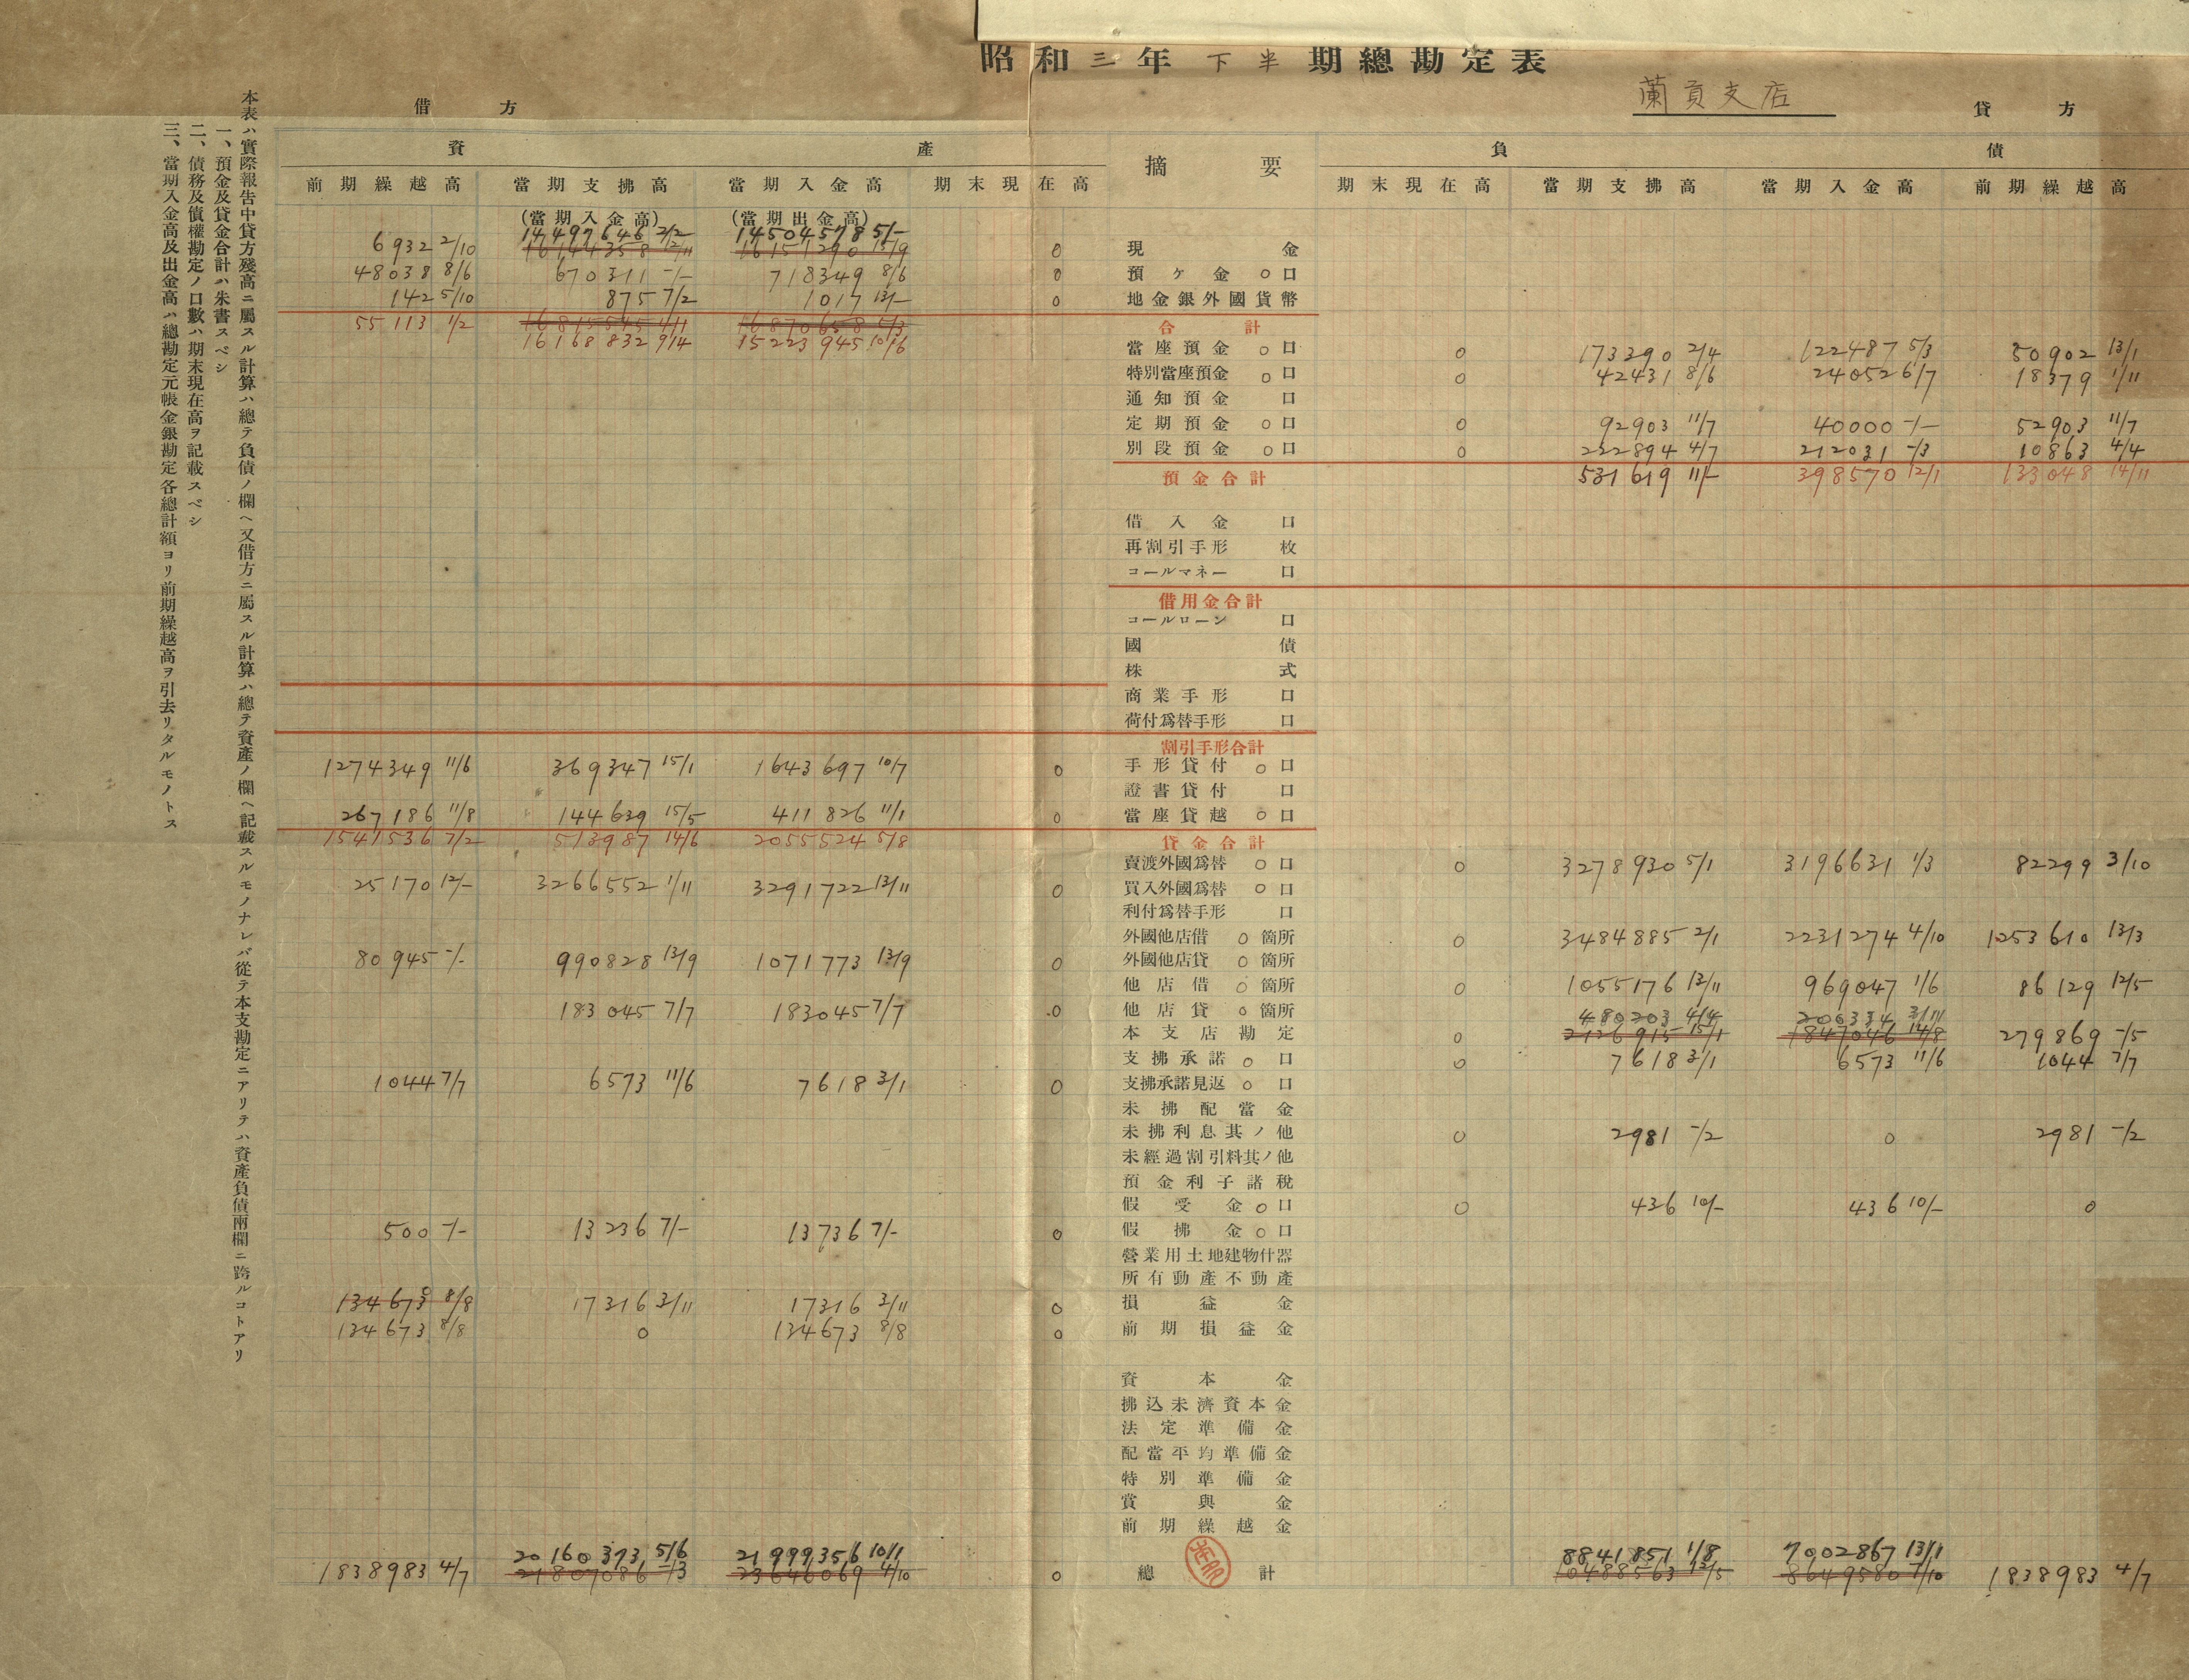 昭和三年下半期總勘定表
蘭貢支店
借方
貸方
資產
摘要
負債
前期繰越高 當期支拂高 當期入金高 期末現在高
期末現在高 當期支拂高 當期入金高 前期繰越高
(當期入金高) (當期出金高)
14497646 2/2 14504578 5/-
6932 2/10 16144358 12/11 16151290 15/9 0 現金
48038 8/6 670311 -/- 718349 8/6 0 預ヶ金 0口
142 5/10 875 7/2 1017 13/- 0 地金銀外國貨幣
55113 1/2 16815545 4/1 16870658 5/3 合計
16168832 9/4 15223945 10/6
當座預金 0口 0 173390 2/4 122487 5/3 50902 13/1
特別當座預金 0口 0 42431 8/6 24052 6/7 18379 1/11
通知預金 口
定期預金 0口 0 92903 11/7 40000 -/- 52903 11/7
別段預金 0口 0 222894 4/7 212031 -/3 10863 4/4
預金合計 531619 11/- 398570 12/1 133048 14/11
借入金 口
再割引手形 枚
コールマネー 口
借用金合計
コールローン 口
國債
株式
商業手形 口
荷付爲替手形 口
割引手形合計
1274349 11/6 369347 15/1 1643697 10/7 0 手形貸付 0口
證書貸付 口
267186 11/8 144639 15/5 411826 11/1 0 當座貸越 0口
1541536 7/2 513987 14/6 2055524 5/8 貸金合計
賣渡外國爲替 0口 0 3278930 5/1 3196631 1/3 82299 3/10
25170 12/- 3266552 1/11 3291722 13/11 0 買入外國爲替 0口
利付爲替手形 口
外國他店借 0箇所 0 3484885 2/1 2231274 4/10 1253610 13/3
80945 -/- 990828 13/9 1071773 13/9 0 外國他店貸 0箇所
他店借 0箇所 0 1055176 13/11 969047 1/6 86129 12/5
183045 7/7 183045 7/7 0 他店貸 0箇所
480203 4/4 200334 3/11
本支店勘定 0 2126915 15/1 1847046 14/8 279869 -/5
支拂承諾 0口 0 7618 3/1 6573 11/6 1044 7/7
1044 7/7 6573 11/6 7618 3/1 0 支拂承諾見返 0口
未拂配當金
未拂利息其ノ他 0 2981 -/2 0 2981 -/2
未經過割引料其ノ他
預金利子諸稅
假受金 0口 0 436 10/- 436 10/- 0
500 -/- 13236 7/- 13736 7/- 0 假拂金 0口
營業用土地建物什器
所有動產不動產
134673 8/8 17316 3/11 17316 3/11 0 損益金
134673 8/8 0 134673 8/8 0 前期損益金
資本金
拂込未濟資本金
法定準備金
配當平均準備金
特別準備金
賞與金
前期繰越金
20160373 5/6 21999356 10/1 8841851 1/8 7002867 13/1
1838983 4/7 21807086 -/3 23646069 4/10 0 總計 10488563 13/5 8649580 7/10 1838983 4/7
本表ハ實際報告中貸方殘高ニ屬スル計算ハ總テ負債ノ欄ヘ又借方ニ屬スル計算ハ總テ資產ノ欄ヘ記載スルモノナレバ從テ本支勘定ニアリテハ資產負債兩欄ニ跨ルコトアリ
一、預金及貸金合計ハ朱書スベシ
二、債務及債權勘定ノ口數ハ期末現在高ヲ記載スベシ
三、當期入金高及出金高ハ總勘定元帳金銀勘定各總計額ヨリ前期繰越高ヲ引去リタルモノトス